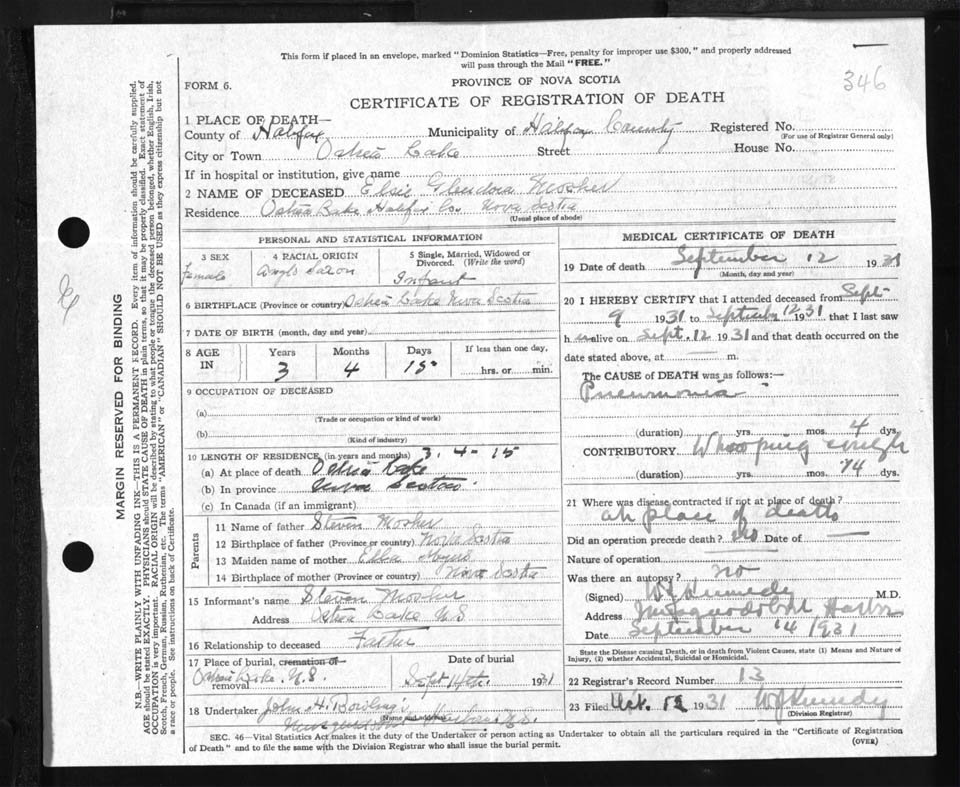 This form if placed in an envelope, marked "Dominion Statistics—Free, penalty for improper use $300," and properly addressed
will pass through the Mail "FREE."
346
FORM 6.
PROVINCE OF NOVA SCOTIA
CERTIFICATE OF REGISTRATION OF DEATH
1 PLACE OF DEATH—
County of Halifax Municipality of Halifax County Registered No.
(For use of Registrar General only)
City or Town Lake Street House No.
If in hospital or institution, give name
2 NAME OF DECEASED Elsie Mosher
Residence Lake Halifax Co. Nova Scotia
(Usual place of abode)
PERSONAL AND STATISTICAL INFORMATION
3 SEX 4 RACIAL ORIGIN 5 Single, Married, Widowed or Divorced. (Write the word)
Female Anglo Saxon Infant
6 BIRTHPLACE (Province or country) Lake Nova Scotia
7 DATE OF BIRTH (month, day and year)
8 AGE IN Years Months Days If less than one day,
3 4 15 hrs. or min.
9 OCCUPATION OF DECEASED
(a)
(Trade or occupation or kind of work)
(b)
(Kind of industry)
10 LENGTH OF RESIDENCE (in years and months) 3-4-15
(a) At place of death Lake
(b) In province Nova Scotia
(c) In Canada (if an immigrant)
Parents
11 Name of father Steven Mosher
12 Birthplace of father (Province or country) Nova Scotia
13 Maiden name of mother
14 Birthplace of mother (Province or country) Nova Scotia
15 Informant's name Steven Mosher
Address Lake N.S
16 Relationship to deceased Father
17 Place of burial, cremation or removal Date of burial
Lake N.S. Sept 14th. 1931
18 Undertaker John H. Bowling
(Name and address) Harbour N.S.
MEDICAL CERTIFICATE OF DEATH
19 Date of death September 12 1931
(Month, day and year)
20 I HEREBY CERTIFY that I attended deceased from Sept-
9 1931 to September 12 1931 that I last saw
h alive on Sept. 12 1931 and that death occurred on the
date stated above, at — m.
The CAUSE of DEATH was as follows:—
Pneumonia
(duration) yrs. mos. 4 dys.
CONTRIBUTORY Whooping cough
(duration) yrs. mos. 14 dys.
21 Where was disease contracted if not at place of death?
at place of death
Did an operation precede death? no Date of —
Nature of operation
Was there an autopsy? no
(Signed) WJ Kennedy M.D.
Address Musquodoboit Harbor
Date September 14 1931
State the Disease causing Death, or in death from Violent Causes, state (1) Means and Nature of
Injury, (2) whether Accidental, Suicidal or Homicidal.
22 Registrar's Record Number 13
23 Filed Oct. 1931 WJ Kennedy
(Division Registrar)
SEC. 46—Vital Statistics Act makes it the duty of the Undertaker or person acting as Undertaker to obtain all the particulars required in the "Certificate of Registration
of Death" and to file the same with the Division Registrar who shall issue the burial permit.
(OVER)
MARGIN RESERVED FOR BINDING
N.B.—WRITE PLAINLY WITH UNFADING INK—THIS IS A PERMANENT RECORD. Every item of information should be carefully supplied.
AGE should be stated EXACTLY. PHYSICIANS should STATE CAUSE OF DEATH in plain terms, so that it may be properly classified. Exact statement of
OCCUPATION is very important. RACIAL ORIGIN will be described by stating to what people or tongue the deceased person belonged, whether English, Irish,
Scotch, French, German, Russian, Ruthenian, etc. The terms "AMERICAN" or "CANADIAN" SHOULD NOT BE USED as they express citizenship but not
a race or people. See instructions on back of Certificate.